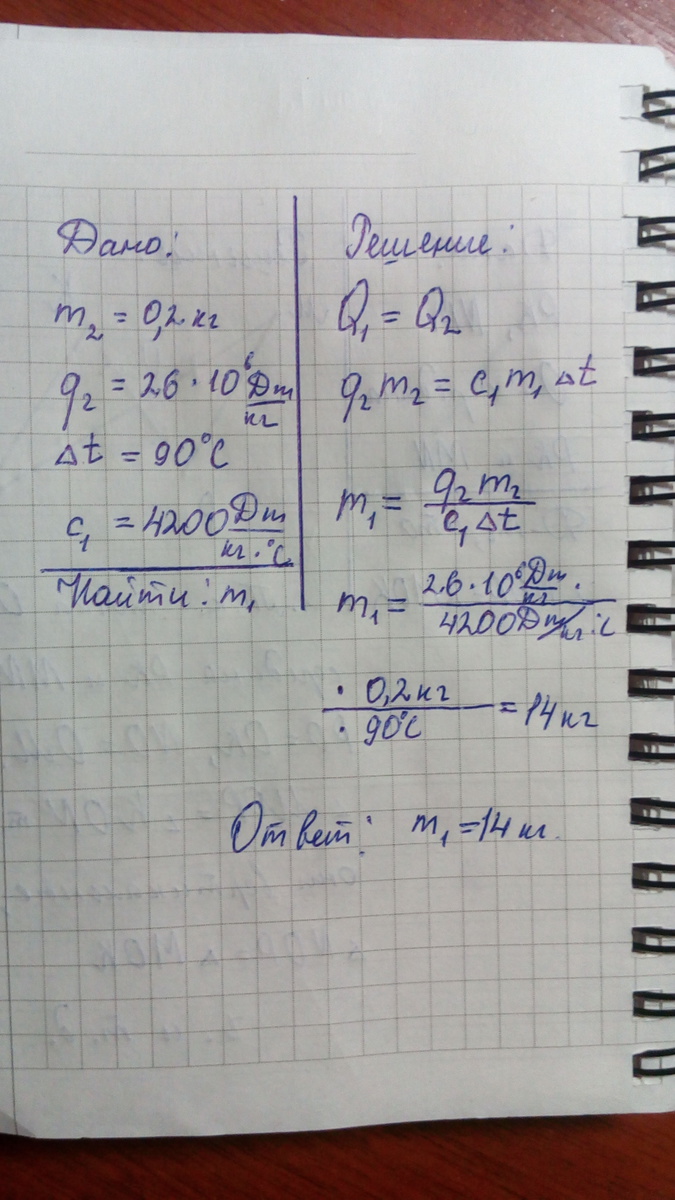 Дано:
m₂ = 0,2 кг
q₂ = 26 · 10⁶ Дж/кг
Δt = 90°C
c₁ = 4200 Дж/кг·°C
Найти: m₁
Решение:
Q₁ = Q₂
q₂ m₂ = c₁ m₁ Δt
m₁ = q₂ m₂ / c₁ Δt
m₁ = 26 · 10⁶ Дж/кг · / 4200 Дж/кг·°C
· 0,2 кг / · 90°C = 14 кг
Ответ: m₁ = 14 кг.